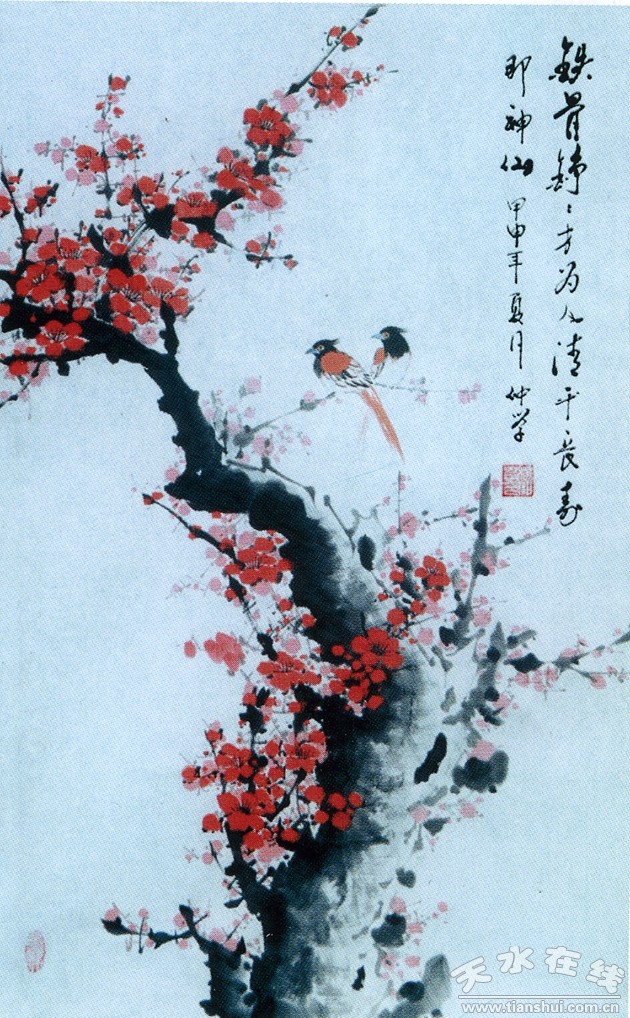 铁骨铮铮方为人清平长寿
即神仙 甲申年夏月 仲学
天水在线
www.tianshui.com.cn